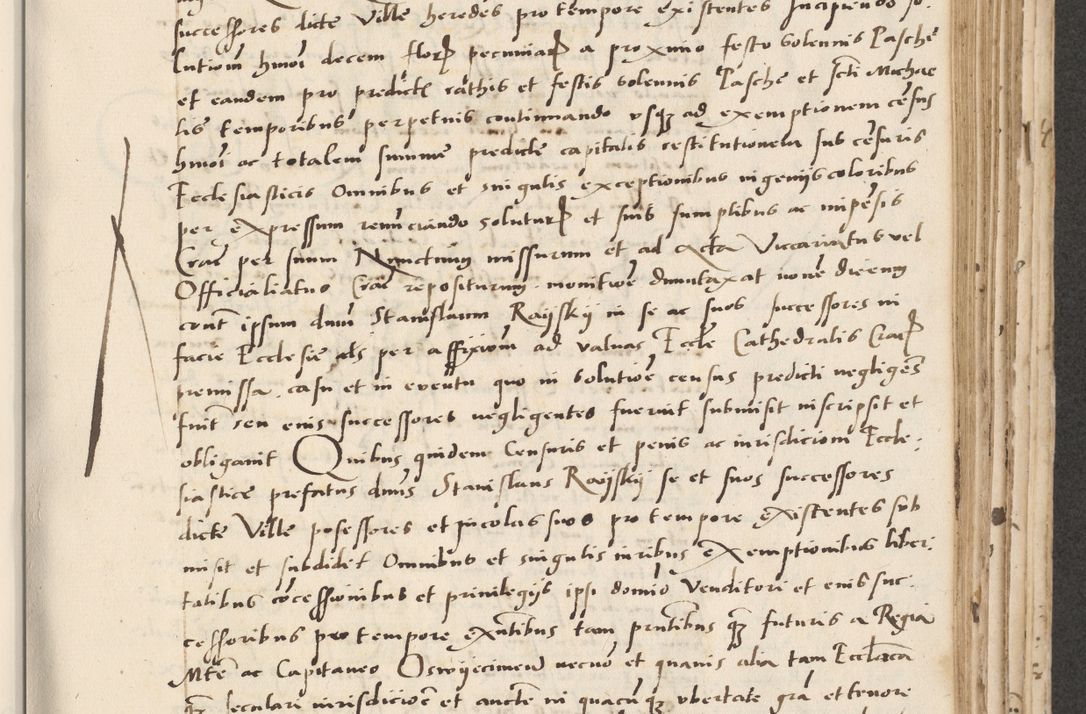 successores dicte Ville heredes pro tempore existentes Incipiendo so:
lutiom hmoi decem flor pecuniar a proximo festo solennis Pasche
et eandem pro predict rathis et festis solennis Pasche et scti Michae
lis temporibus perpetuis continuando usq ad exemptionem cesus
hmoi ac totalem summe predicte capitalis restitutionem sub cesuris
Ecclesiasticis Omnibus et singulis exceptionibus ingeniis coloribus
per expressum renuciando soluturp et suis sumptibus ac impesis
Crac per suum Nunctium missurum et ad acta Vicariatus vel
Officialiatus Crac repositurum. monitioe duntaxat none dierum
cont ipsum dnm Stanislaum Rayskij in se ac suos successores in
facie Ecclesie als per affixiom ad valuas Eccle Cathedralis Crac
premissa. casu et in eventu quo in solutioe census predicti negliges
fuit seu eius successores negligentes fuerint submisit inscripsit et
obligavit Quibus quidem Censuris et penis ac iurisdiciom Eccle:
siastice prefatus dnus Stanislaus Rayskij se et suos successores
dicte Ville possessores et incolas suos pro tempore existentes sub
misit et subdidit Omnibus et singulis iuribus exemptionibus liber:
tatibus cocessionibus et privilegiis ipsi domio Venditori et eius suc:
cessoribus pro tempore exntibus tam prntibus q futuris a Regia
Mte ac Capitaneo Oswijecimen necno et quavis alia tam Ecclasca
q seculari iurisdicioe et aucte in quacuq ubertate gra et tenore